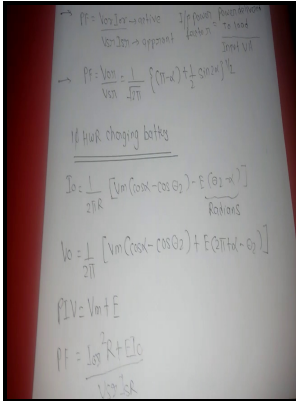 → PF = VorIor → active
VsrIor → apparent
I/p power factor = power delivered to load
Input VA
→ PF = Vor/Vsr = 1/√2π {(π-α)+1/2 sin2α}^1/2
1ϕ HWR charging battery
Io = 1/2πR [Vm(cosα-cosθ2) - E(θ2-α)]
Radians
Vo = 1/2π [Vm(cosα-cosθ2) + E(2π+α-θ2)]
PIV = Vm+E
PF = Ior²R + EIo
VsrIor